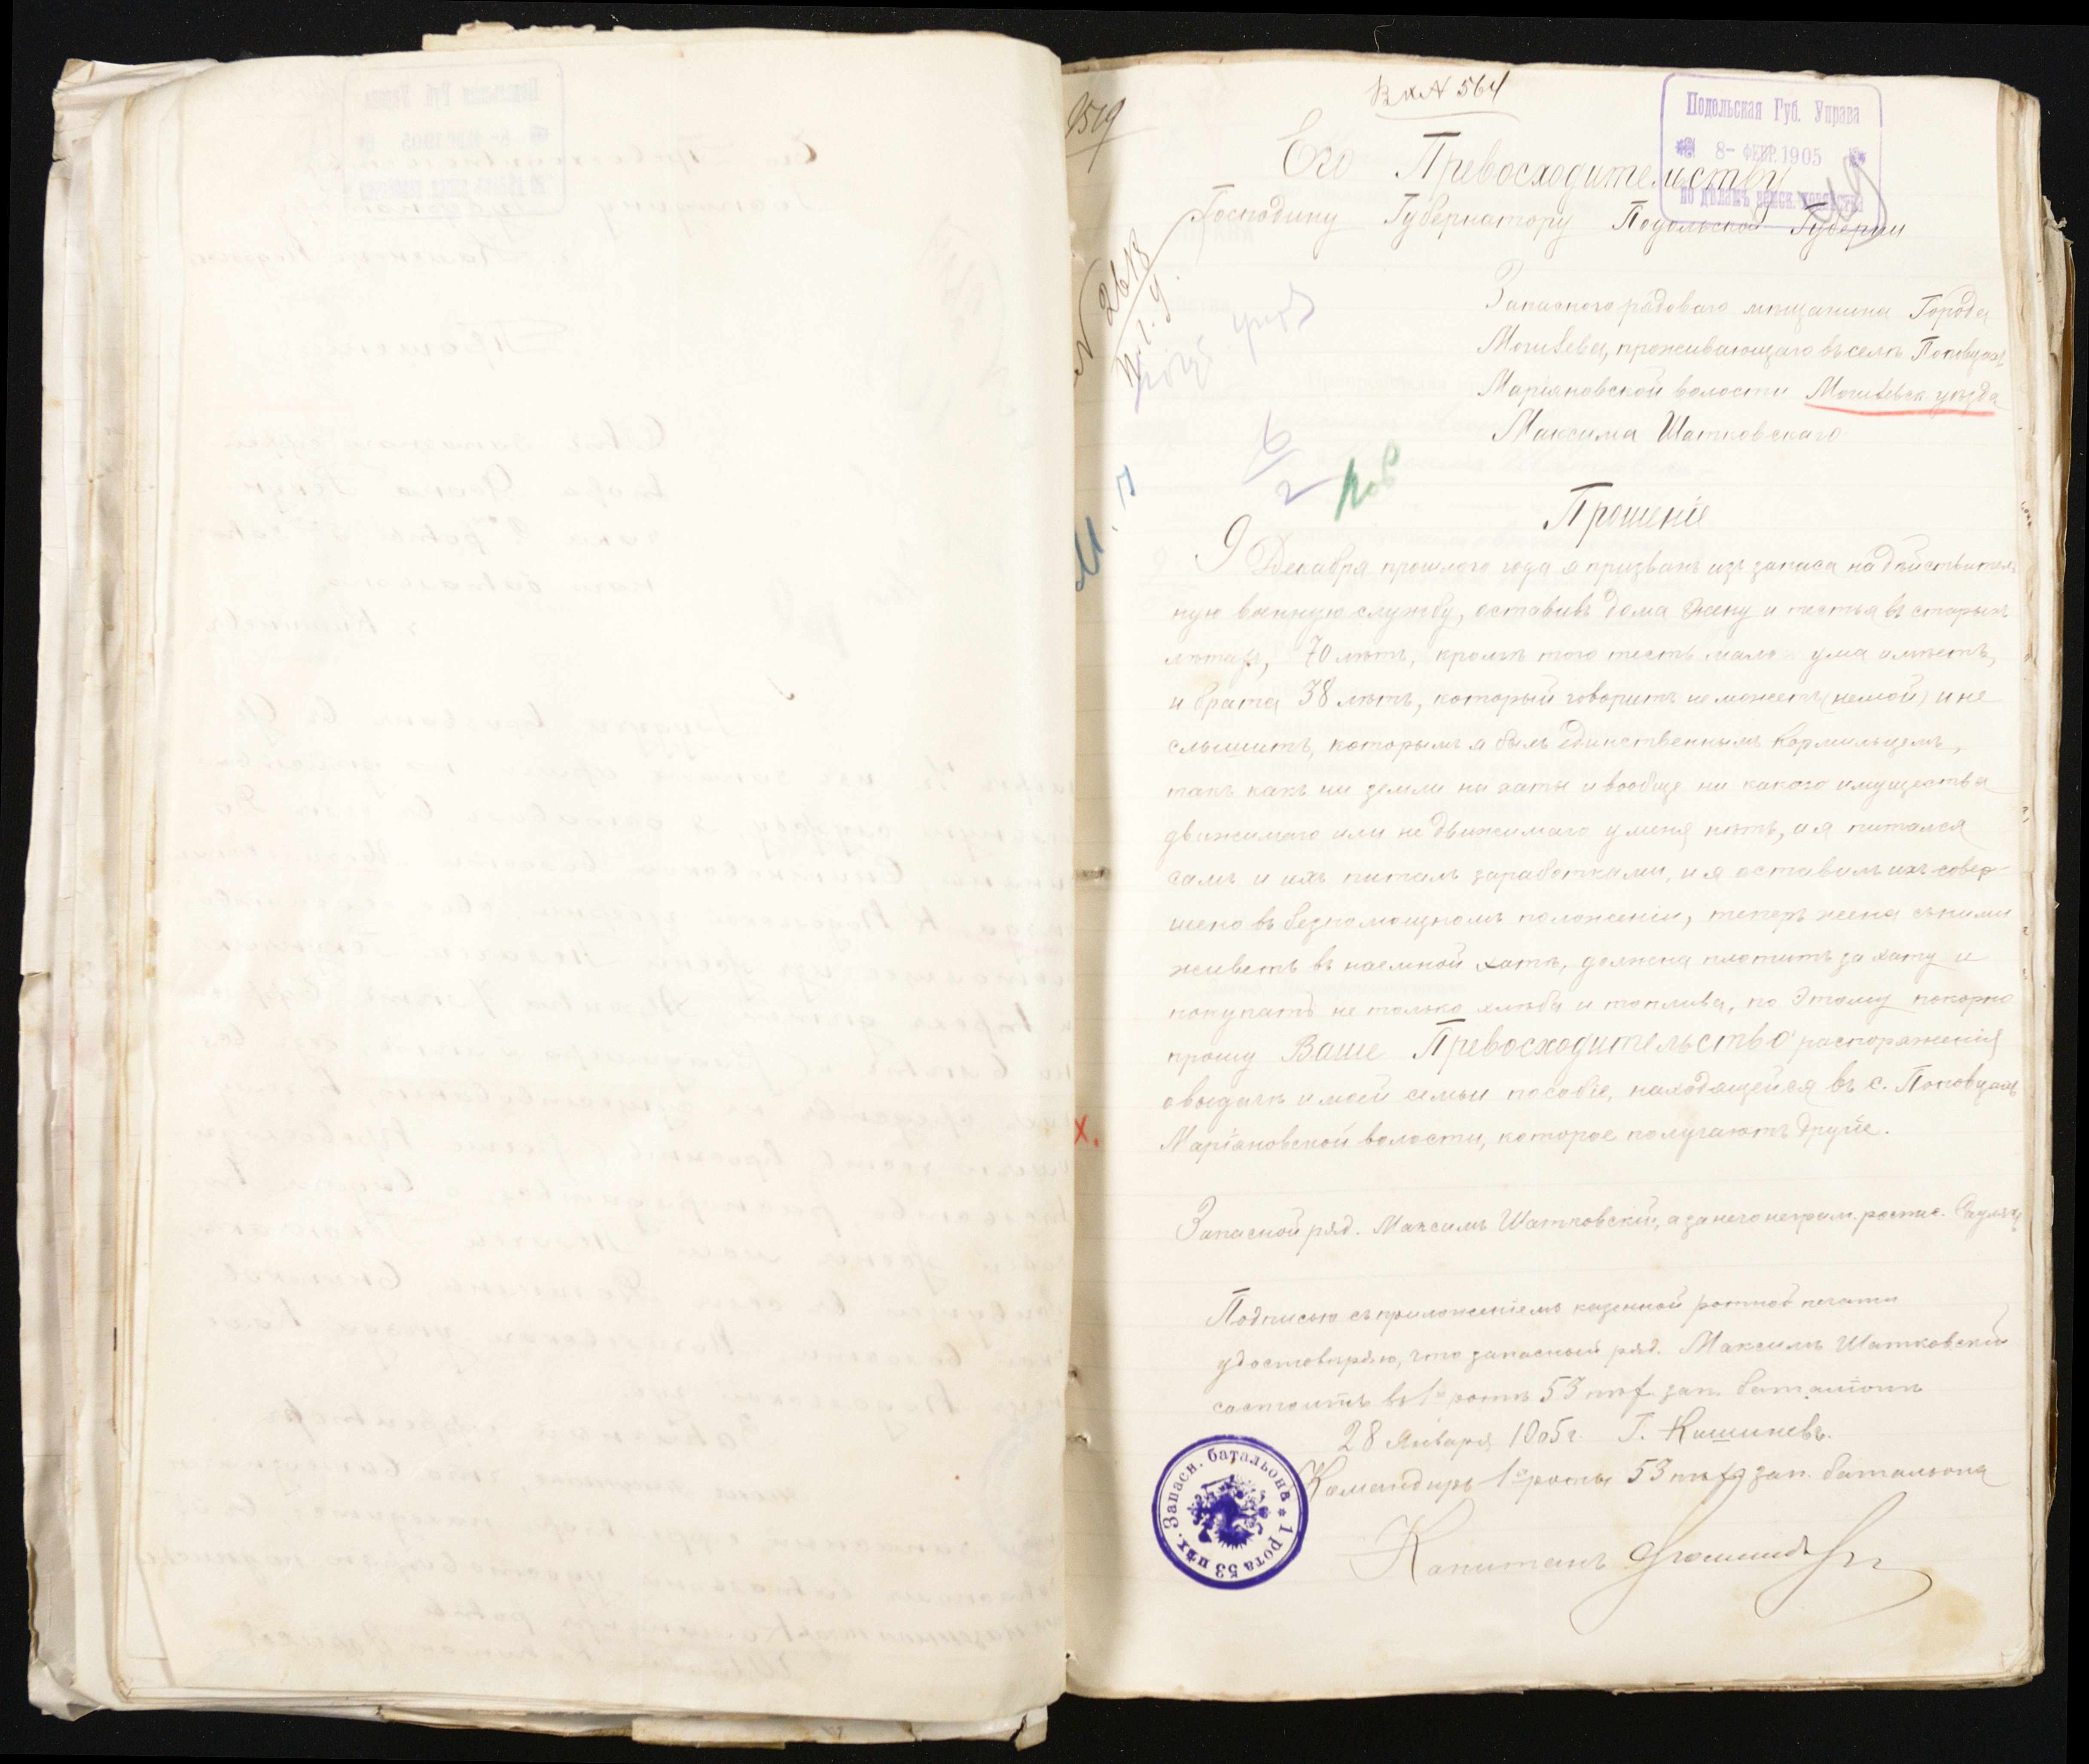 В к А 564
Подольская Губ. Управа
8- ФЕВР. 1905
по дѣламъ
Его Превосходительству
Господину Губернатору Подольской Губерніи
2613
Запаснаго рядоваго мѣщанина Города
Могилева, проживающаго въ селѣ Поповцахъ,
Маріяновской волости Могилевск. уѣзда
Максима Шатковскаго
6
2
Прошеніе
9 Декабря прошлого года я призванъ изъ запаса на дѣйствитель
ную военную службу, оставивъ дома жену и тестья въ старыхъ
лѣтахъ, 70 лѣтъ, кромѣ того тесть мало ума имѣетъ,
и брата 38 лѣтъ, который говорить не можетъ (немой) и не
слышитъ, которымъ я былъ единственнымъ кормильцемъ,
такъ какъ ни земли ни хаты и вообще ни какого имущества
движимаго или не движимаго у меня нѣтъ, и я питался
самъ и ихъ питалъ заработками, и я оставилъ ихъ совер
шено въ безпомощномъ положеніи, теперь жена съ ними
живетъ въ наемной хатѣ, должна платить за хату и
покупать не только хлѣба и топлива, по этому покорно
прошу Ваше Превосходительство распоряженія
о выдачѣ и моей семьи пособіе, находящейся въ с. Поповцахъ
Маріяновской волости, которое получаютъ другіе.
Запасной ряд. Максимъ Шатковскій, а за него неграм. роспис.
Подписью съ приложеніемъ казенной ротной печати
удостовѣряю, что запасный ряд. Максимъ Шатковскій
состоитъ въ 1й ротѣ 53 пѣх. зап. баталіонѣ
28 Января 1905 г. Г. Кишиневъ.
Командиръ 1й роты 53 пѣх. зап. батальона
Капитанъ
1 рота 53 пѣх. Запасн. батальона